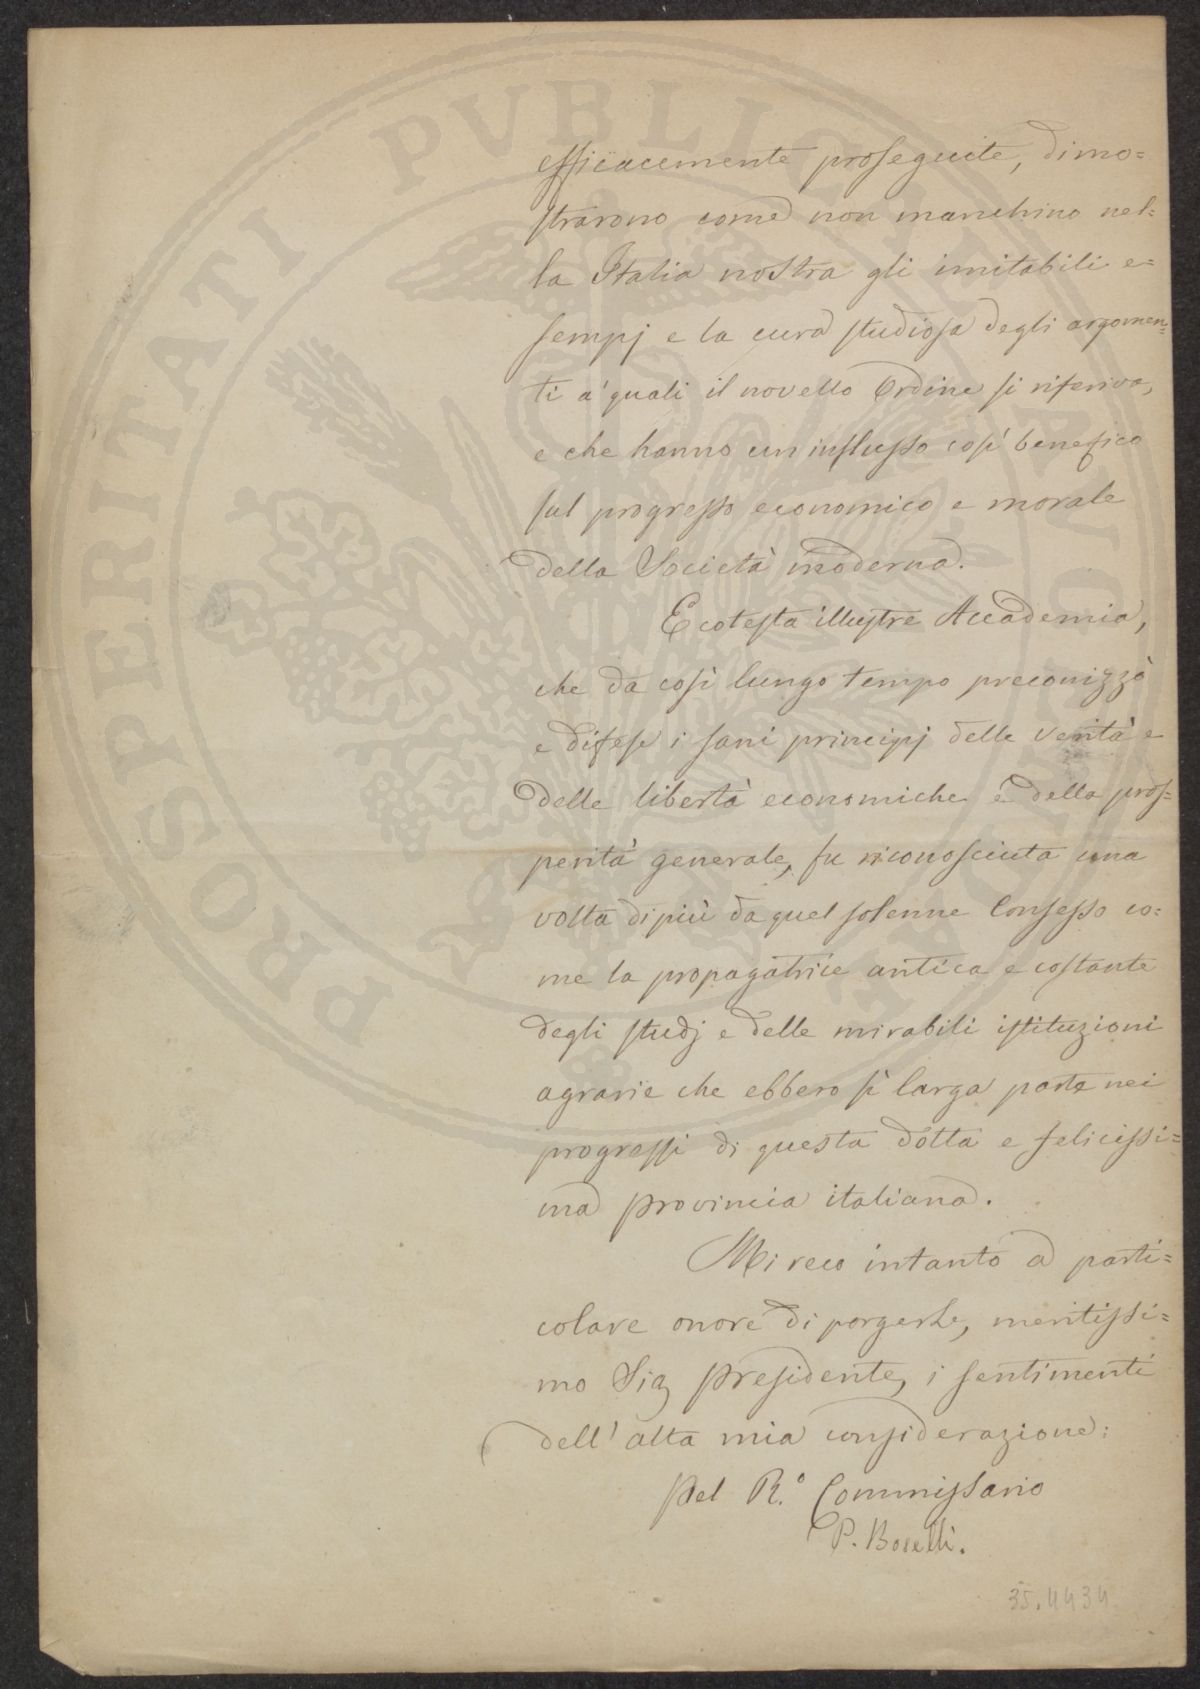 efficacemente proseguite, dimo=
strarono come non manchino nel=
la Italia nostra gli imitabili e=
sempj e la cura studiosa degli argomen=
ti a' quali il novello Ordine si riferiva,
e che hanno un influsso così benefico
sul progresso economico e morale
della Società moderna.
E cotesta illustre Accademia,
che da così lungo tempo preconizzò
e difese i sani principj delle verità e
delle libertà economiche e della pros=
perità generale, fu riconosciuta una
volta di più da quel solenne Consesso co=
me la propagatrice antica e costante
degli studj e delle mirabili istituzioni
agrarie che ebbero sì larga parte nei
progressi di questa dotta e felicissi=
ma provincia italiana.
Mi reco intanto a parti=
colare onore di porgerLe, meritissi=
mo Sig. Presidente, i sentimenti
dell' alta mia considerazione:
Pel R.° Commissario
P. Boselli.
35.4434
PROSPERITATI PVBLICAE